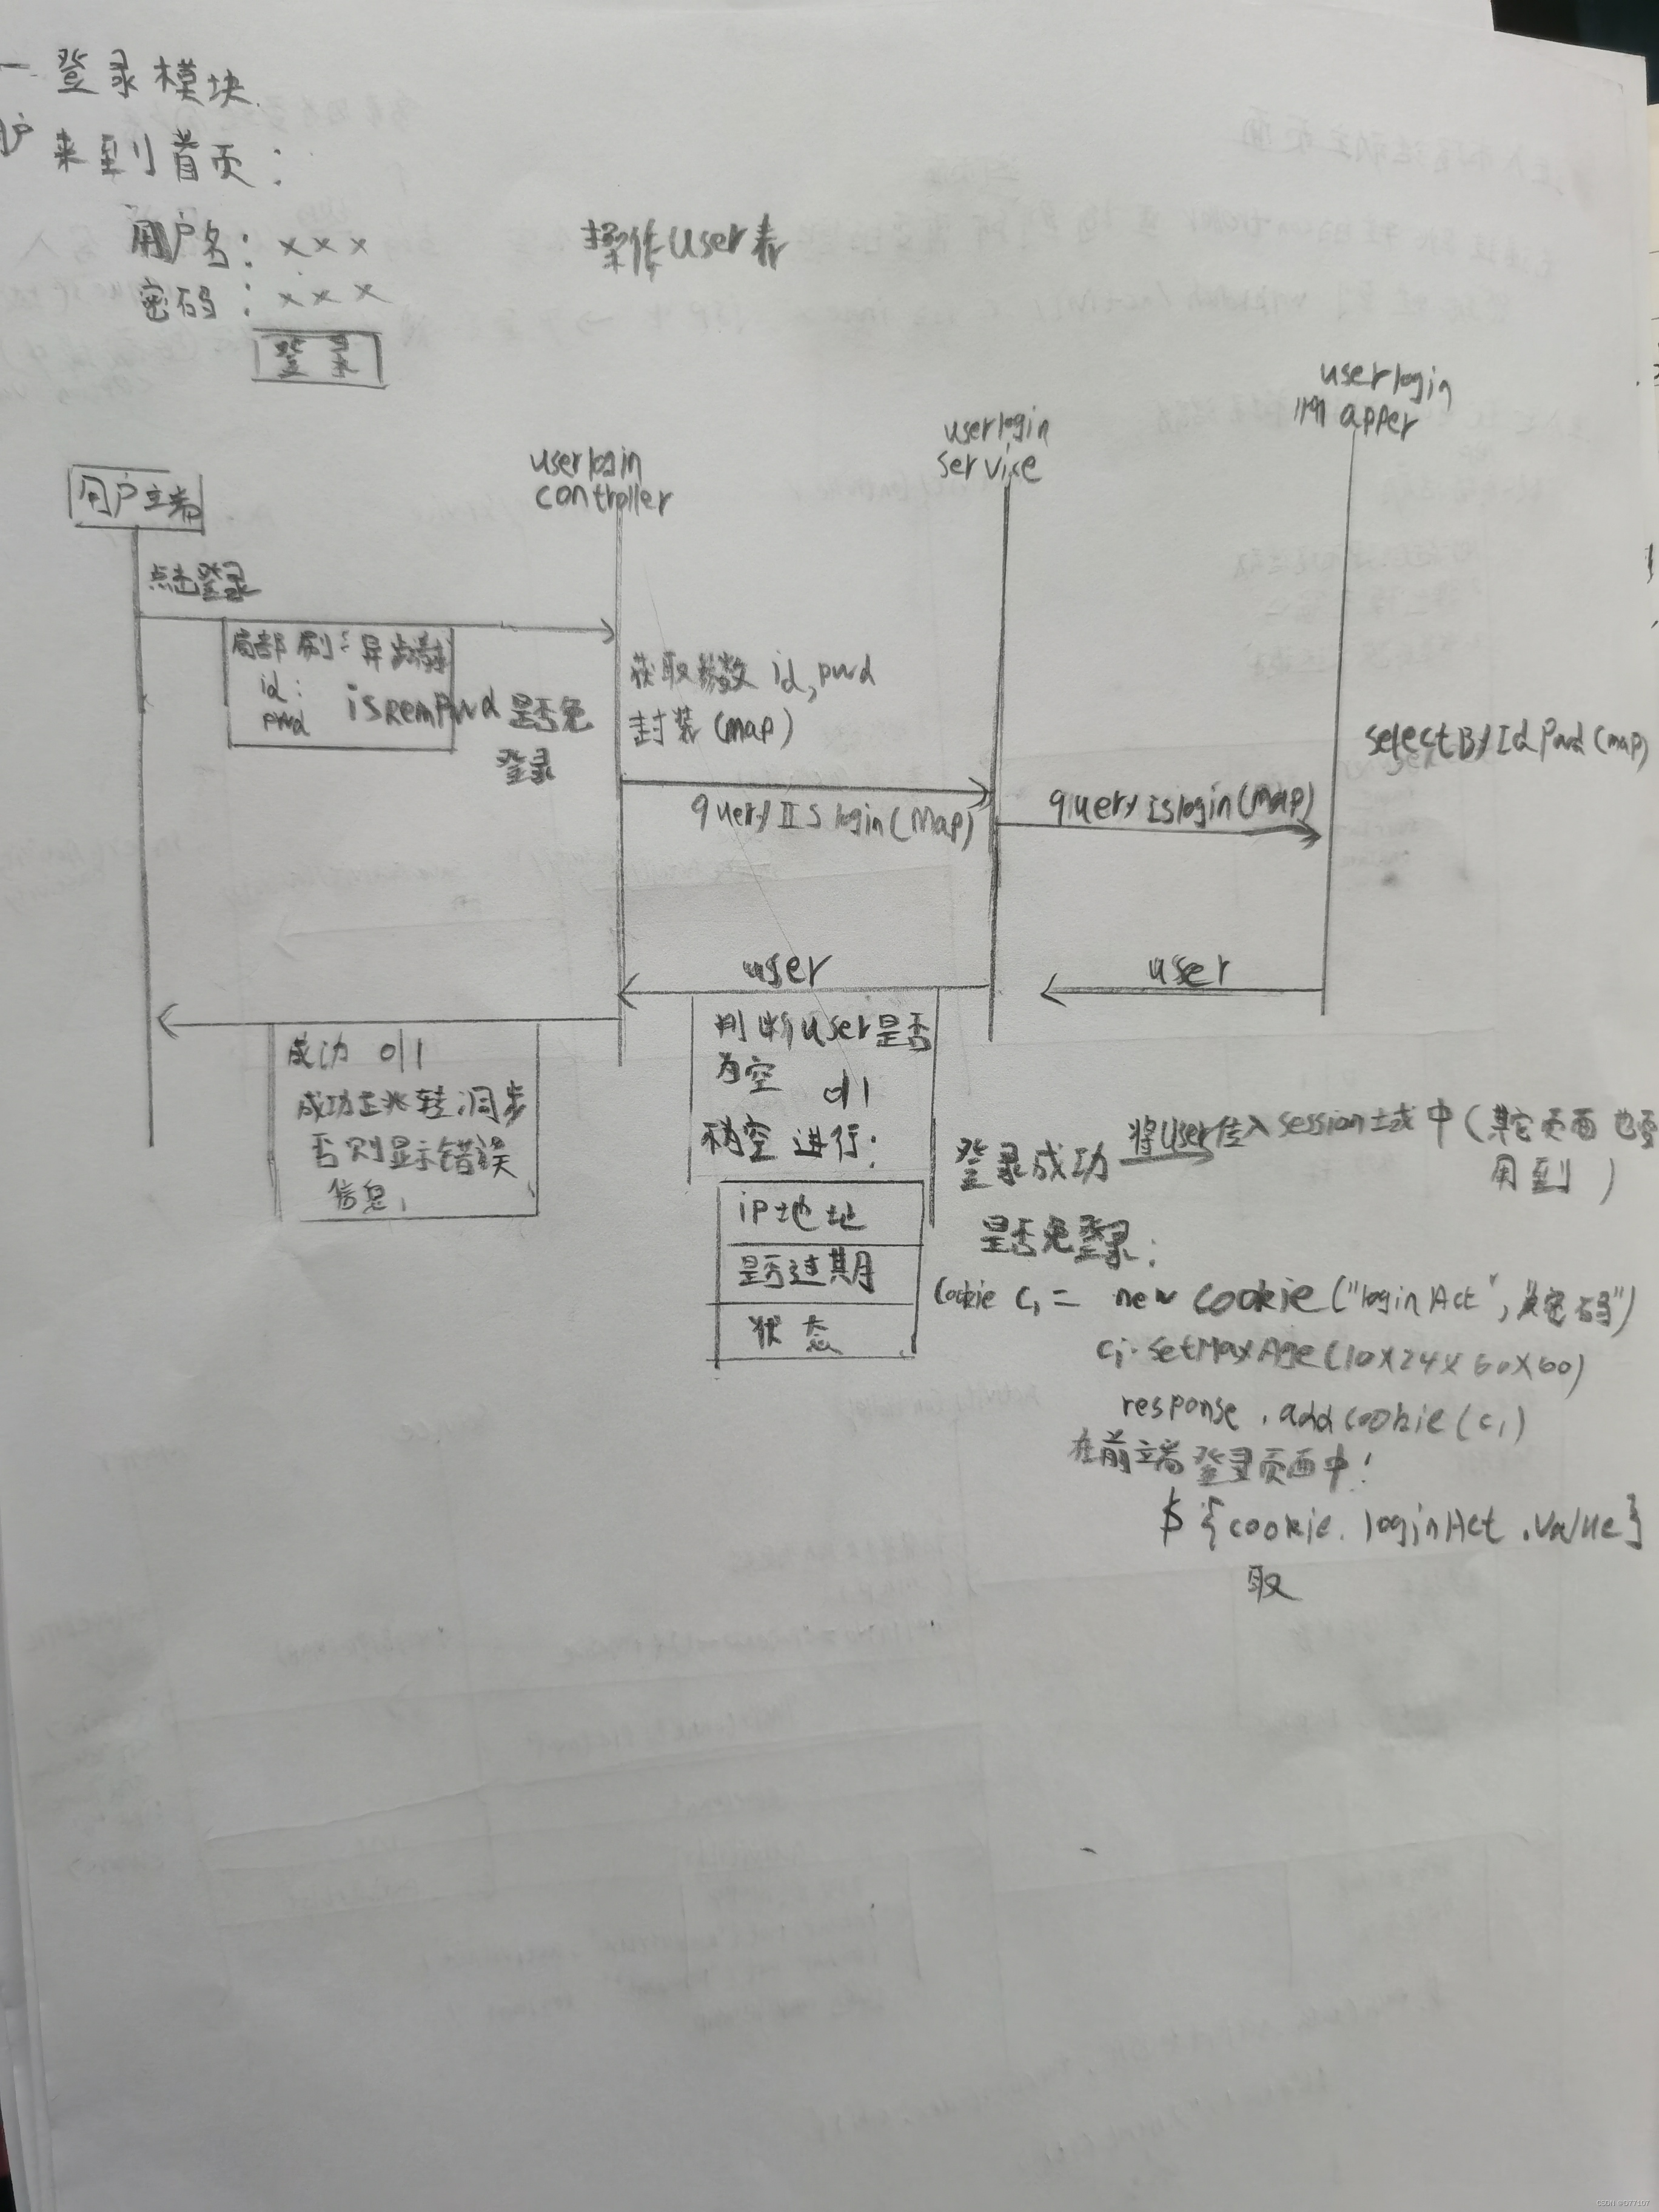 一 登录模块.
户来到首页：
用户名：×××
密码：×××
登录
操作user表
userlogin
mapper
userlogin
service
userlogin
controller
用户立端
点击登录
局部刷: 异步
id:
pwd
isRemPwd 是否免
登录
获取参数 id, pwd
封装 (map)
selectByIdPwd(map)
queryIISlogin(Map)
queryIslogin(map)
user
user
成功 0|1
成功 跳转,同步
否则显示错误
信息,
判断user是否
为空 0|1
不为空 进行:
ip地址
是否过期
状态
登录成功 将user传入session域中(其它页面也要
用到)
是否免登录:
Cookie c1 = new cookie("loginAct", 密码")
c1.setMaxAge(10×24×60×60)
response.addcookie(c1)
在前端登录页面中!
${cookie.loginAct.value}
取
CSDN @D77107